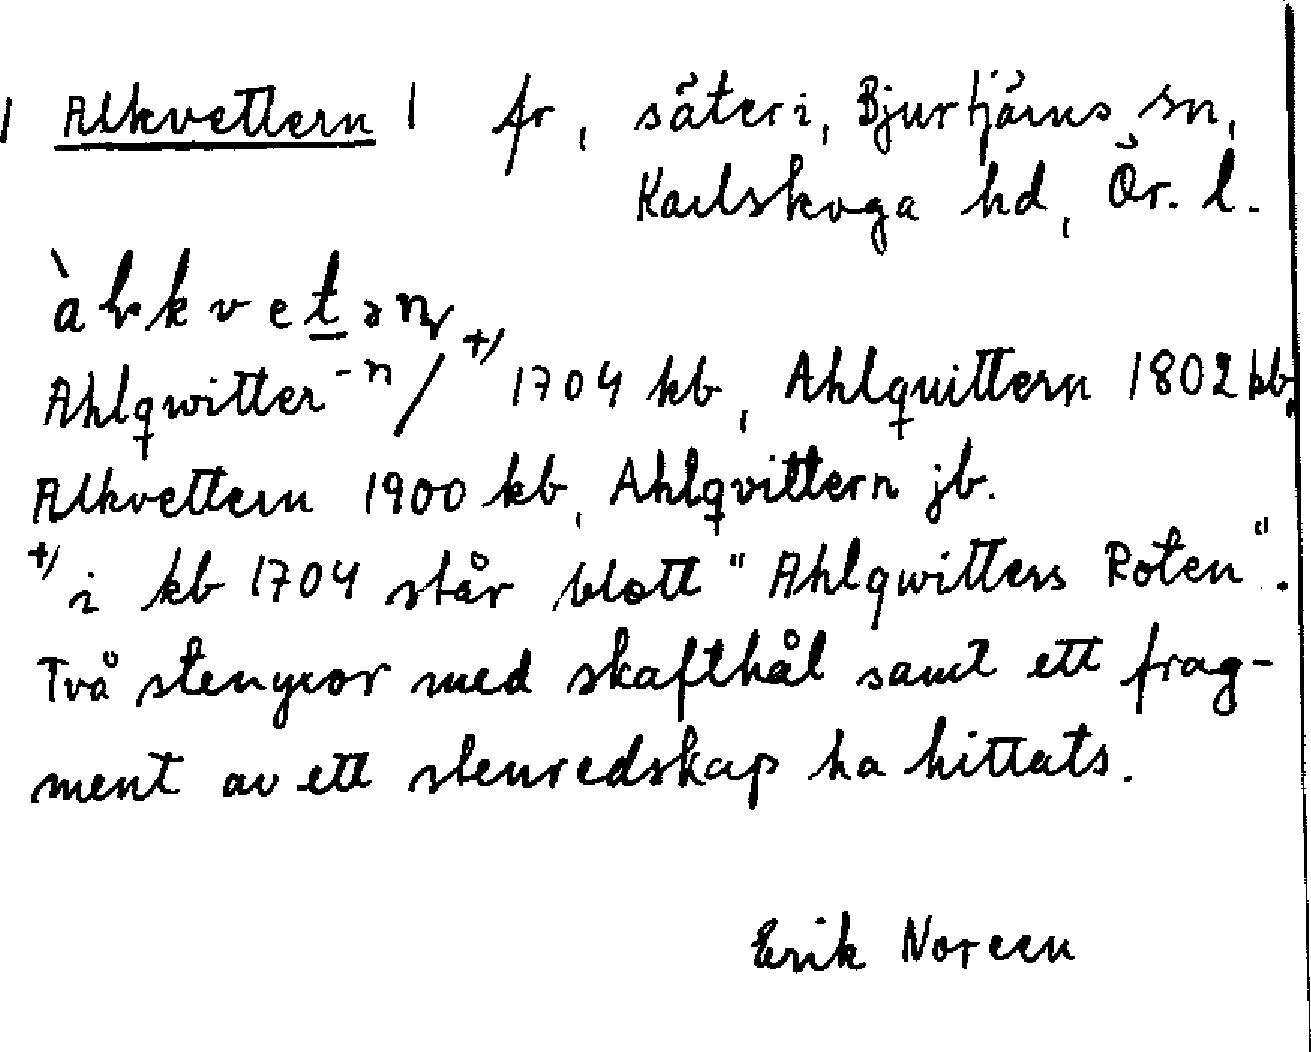 | Alkvettern | fr, säteri, Bjurtjärns sn,
Karlskoga hd, Ör. l.
àlkvetən
Ahlqwitter-n/ +) 1704 kb, Ahlquittern 1802 kb,
Alkvettern 1900 kb, Ahlqvittern jb.
+) i kb 1704 står blott "Ahlqwitters Roten".
Två stenyxor med skafthål samt ett frag-
ment av ett stenredskap ha hittats.
Erik Noreen